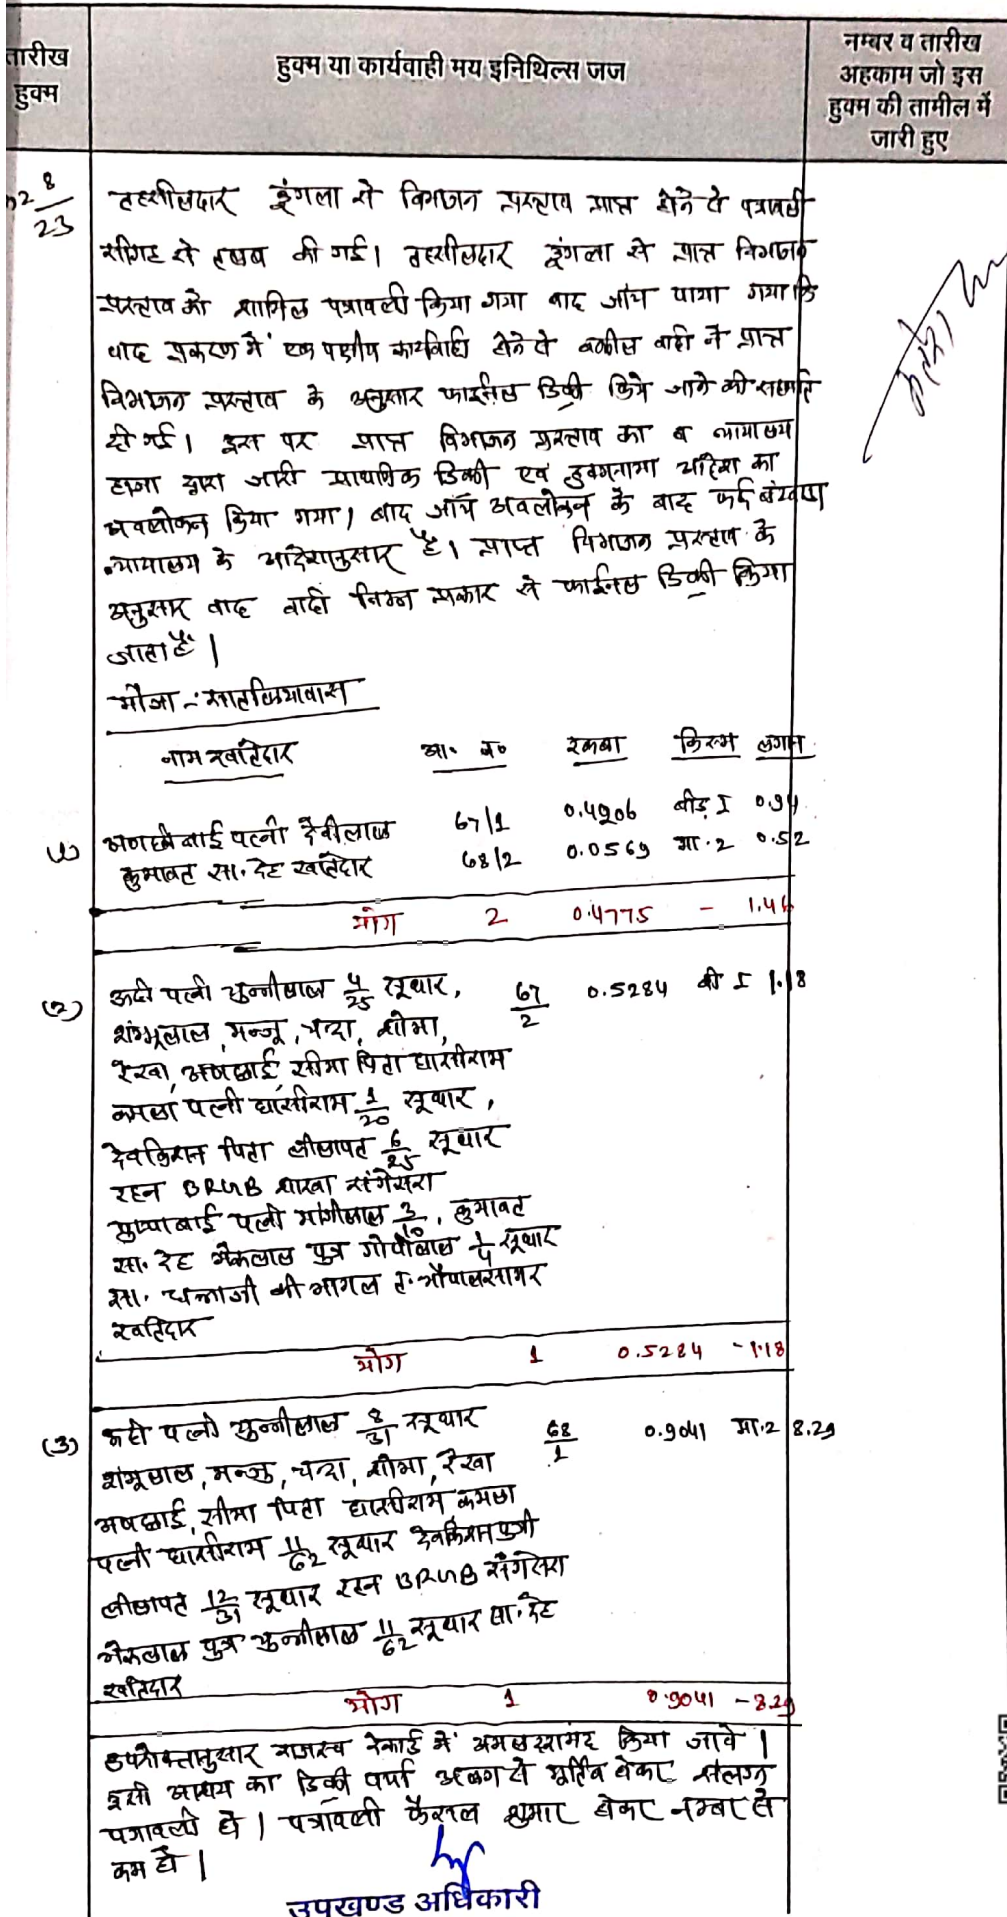 तारीख
हुक्म
हुक्म या कार्यवाही मय इनिथिल्स जज
नम्बर व तारीख
अहकाम जो इस
हुक्म की तामील में
जारी हुए
8
23
तहसीलदार डूंगला से विभाजन प्रस्ताव प्राप्त होने से पत्रावली
सीगह से तलब की गई। तहसीलदार डूंगला से प्राप्त विभाजन
प्रस्ताव को शामिल पत्रावली किया गया बाद जांच पाया गया कि
वाद प्रकरण में एक पक्षीय कार्यवाही होने से वकील वादी ने प्राप्त
विभाजन प्रस्ताव के अनुसार फाईनल डिक्री किये जाने की सहमति
दी गई। इस पर प्राप्त विभाजन प्रस्ताव का व न्यायालय
हाजा द्वारा जारी प्राथमिक डिक्री एवं हुक्मनामा आदेश का
अवलोकन किया गया। बाद जाँच अवलोकन के बाद फर्द बंटवारा
न्यायालय के आदेशानुसार है। प्राप्त विभाजन प्रस्ताव के
अनुसार वाद वादी निम्न प्रकार से फाईनल डिक्री किया
जाता है।
मौजा :-
नाम खातेदार आ. न. रकबा किस्म लगान
(1) पत्नी देवीलाल 67/1 0.4206 बीड़ I 0.94
कुमावत सा. देह खातेदार 68/2 0.0569 मा.2 0.52
योग 2 0.4775 - 1.46
(2) पत्नी चुन्नीलाल 4/25 सूथार, 67/2 0.5284 बी I 1.18
शम्भूलाल, मन्जू, चन्दा, शोभा,
रेखा, सीमा पिता घासीराम
कमला पत्नी घासीराम 1/20 सूथार,
देवकिशन पिता 6/25 सूथार
रहन BRGB शाखा संगेसरा
पुष्पाबाई पत्नी मांगीलाल 3/10, कुमावत
सा. देह भैरूलाल पुत्र गोपीलाल 1/4 सूथार
सा. की भागल त. भोपालसागर
खातेदार
योग 1 0.5284 - 1.18
(3) पत्नी चुन्नीलाल 8/31 सूथार 68/1 0.9041 मा.2 8.29
शंभूलाल, मन्जु, चन्दा, शोभा, रेखा
सीमा पिता घासीराम, कमला
पत्नी घासीराम 11/62 सूथार देवकिशन
12/31 सूथार रहन BRGB संगेसरा
भैरूलाल पुत्र चुन्नीलाल 11/62 सूथार सा. देह
खातेदार
योग 1 0.9041 - 8.29
उपरोक्तानुसार राजस्व रेकार्ड में अमल दरामद किया जावे।
इसी आशय का डिक्री पर्चा अलग से मुर्तिब होकर संलग्न
पत्रावली हो। पत्रावली फैसल शुमार होकर नम्बर से
कम हो।
उपखण्ड अधिकारी